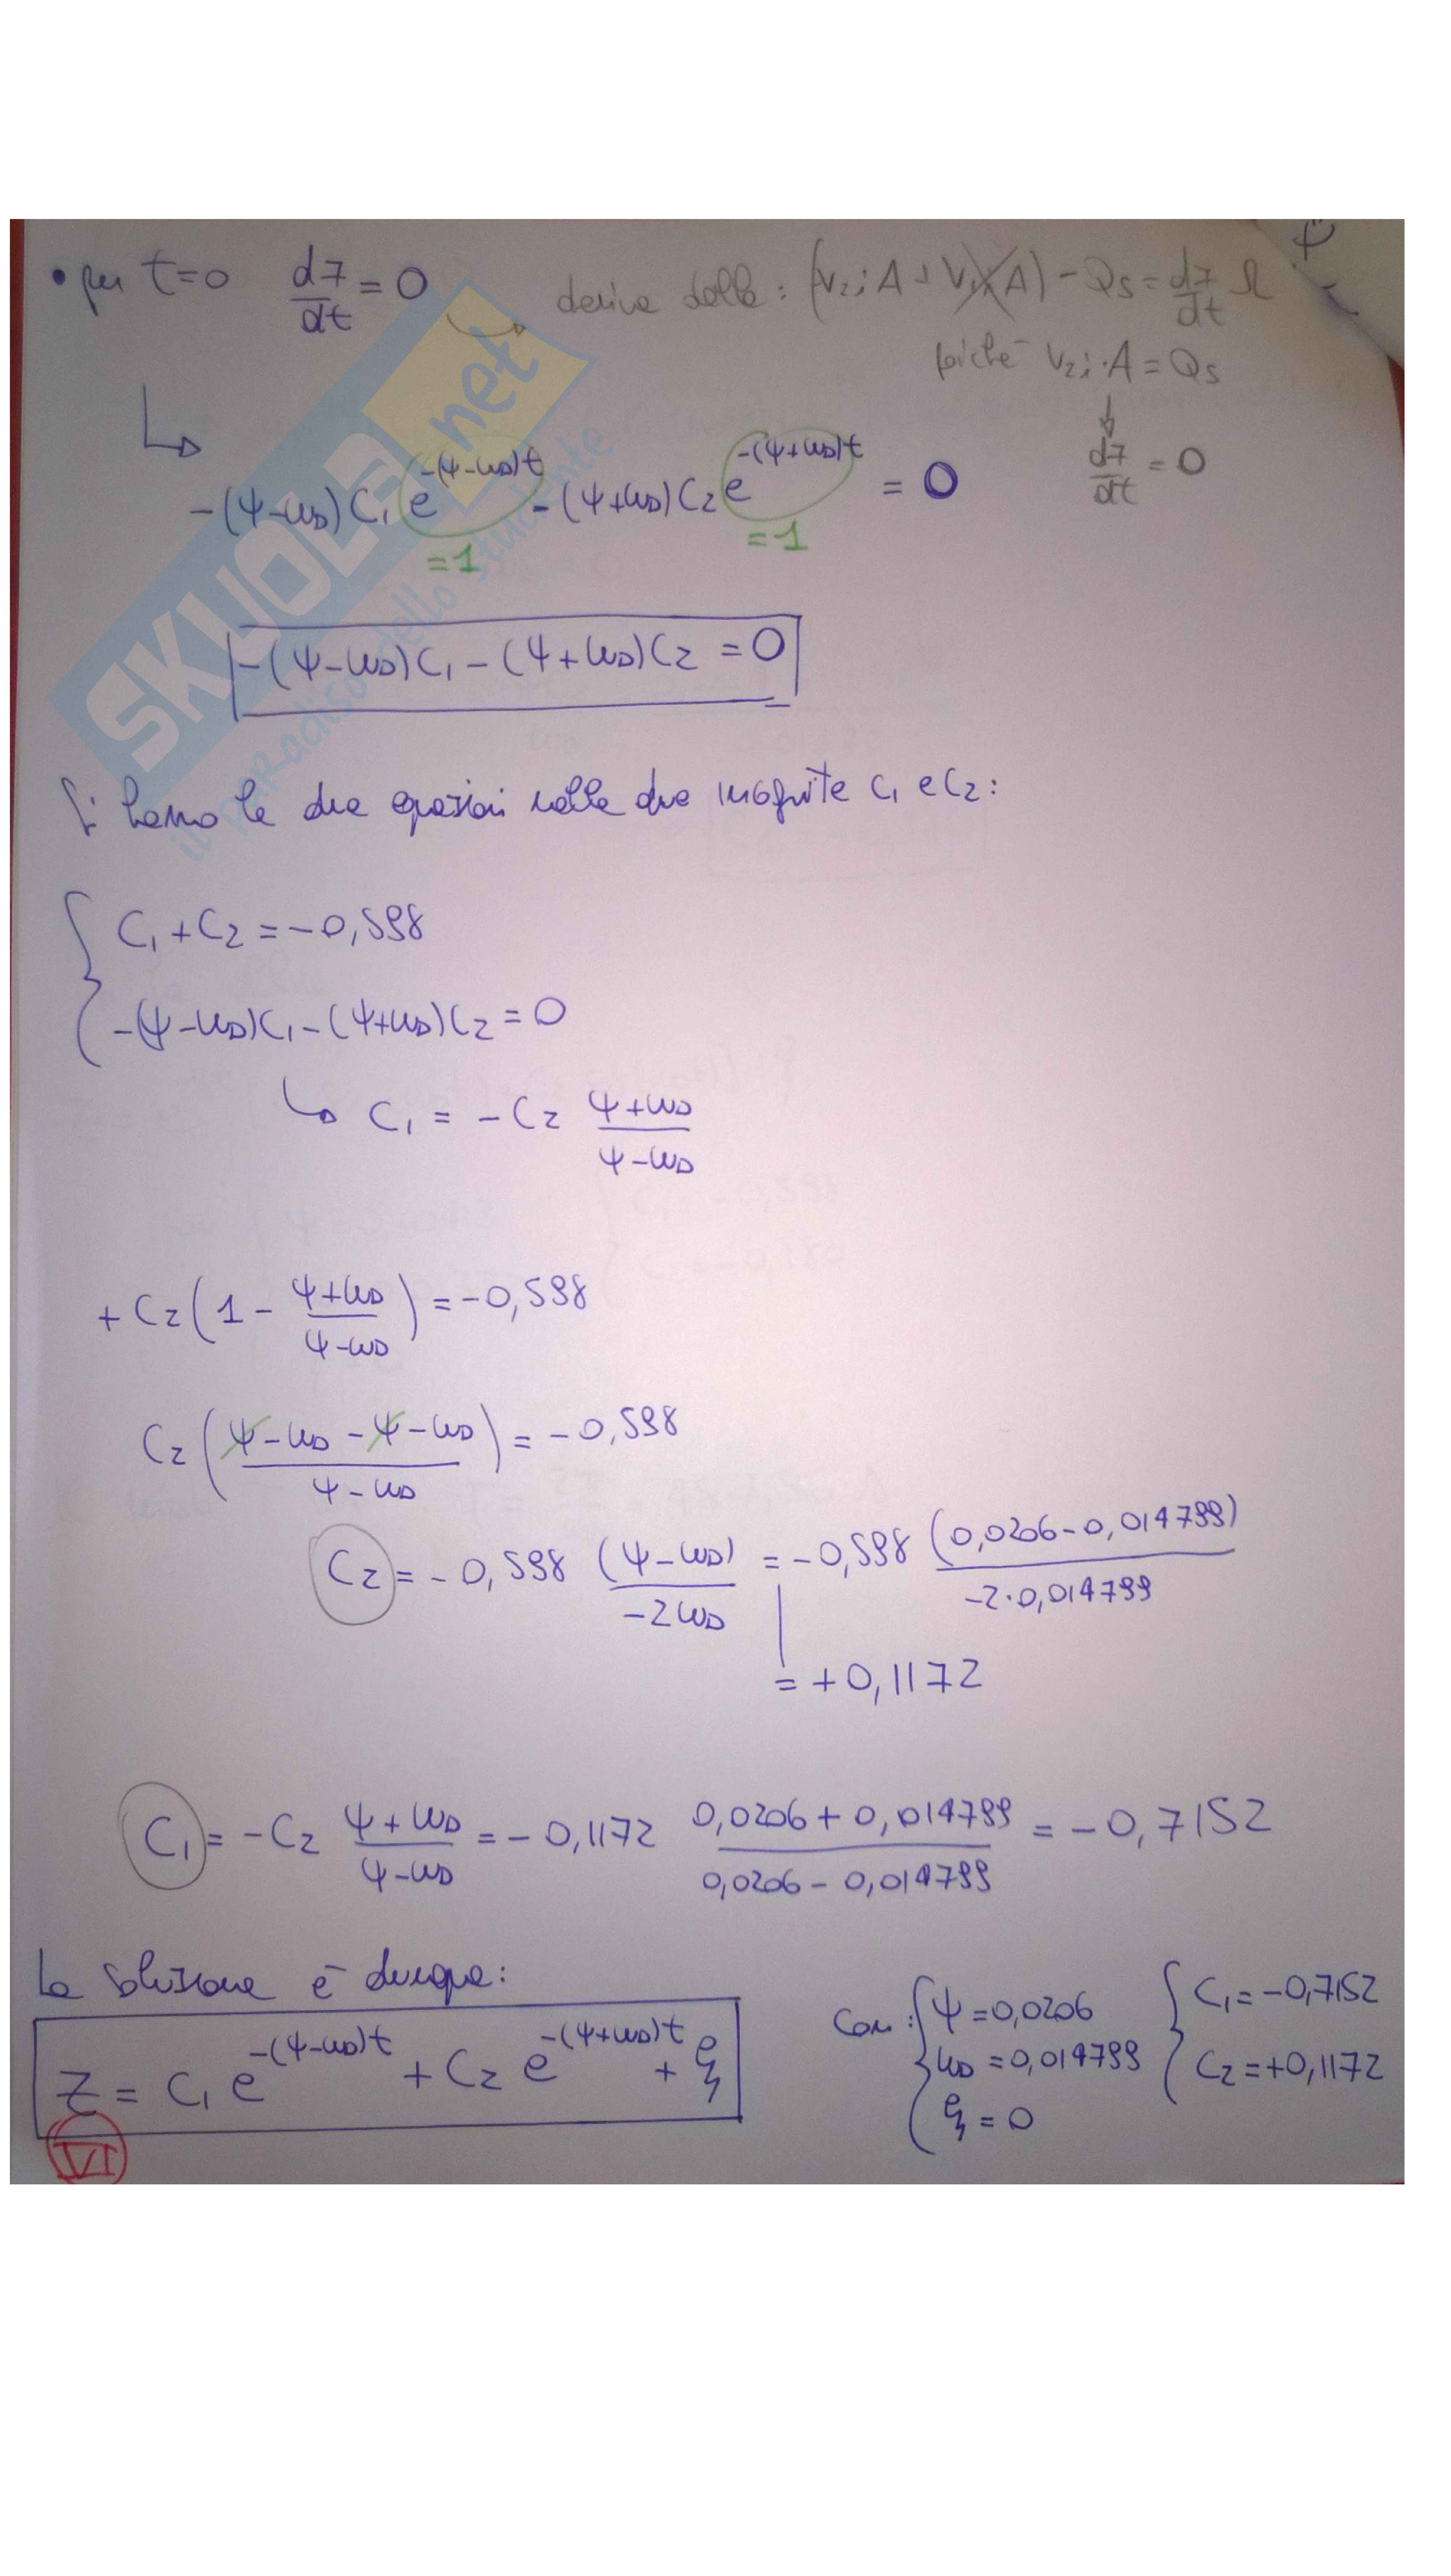 • per t=0 dz/dt = 0 deriva dalla: (V₂ᵢ A + V₁ᵢ A) - Qs = dz/dt Ω
poiché V₂ᵢ·A = Qs
dz/dt = 0
-(ψ-ωD) C₁ e^-(ψ-ωD)t - (ψ+ωD) C₂ e^-(ψ+ωD)t = 0
=1 =1
-(ψ-ωD)C₁ - (ψ+ωD)C₂ = 0
Si hanno le due equazioni nelle due incognite C₁ e C₂:
C₁ + C₂ = -0,598
-(ψ-ωD)C₁ - (ψ+ωD)C₂ = 0
C₁ = -C₂ (ψ+ωD)/(ψ-ωD)
+ C₂ (1 - (ψ+ωD)/(ψ-ωD)) = -0,598
C₂ ((ψ-ωD-ψ-ωD)/(ψ-ωD)) = -0,598
C₂ = -0,598 (ψ-ωD)/(-2ωD) = -0,598 (0,0206-0,014799)/(-2·0,014799)
= +0,1172
C₁ = -C₂ (ψ+ωD)/(ψ-ωD) = -0,1172 (0,0206+0,014799)/(0,0206-0,014799) = -0,7152
La soluzione è dunque:
z = C₁ e^-(ψ-ωD)t + C₂ e^-(ψ+ωD)t + ξ
con: ψ = 0,0206 C₁ = -0,7152
ωD = 0,014799 C₂ = +0,1172
ξ = 0
VI
SKUOLA.net
il paradiso dello studente